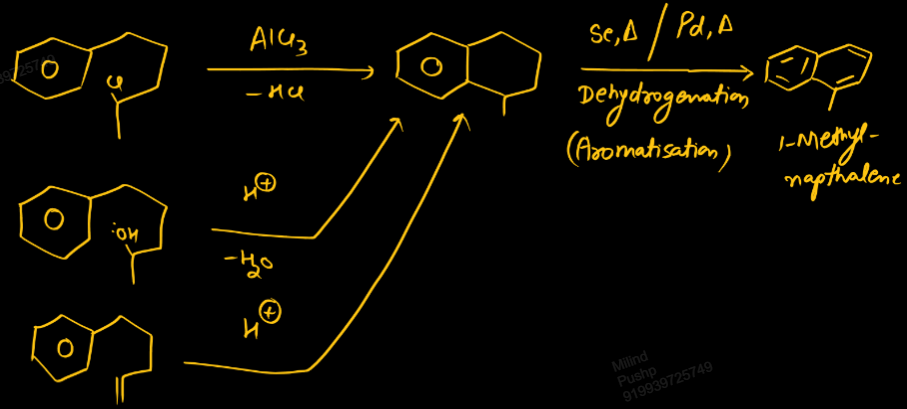 AlCl3
-HCl
Se, Δ / Pd, Δ
Dehydrogenation
(Aromatisation)
1-Methyl-
napthalene
Cl
H⊕
:OH
-H2O
H⊕
Milind
Pushp
919939725749